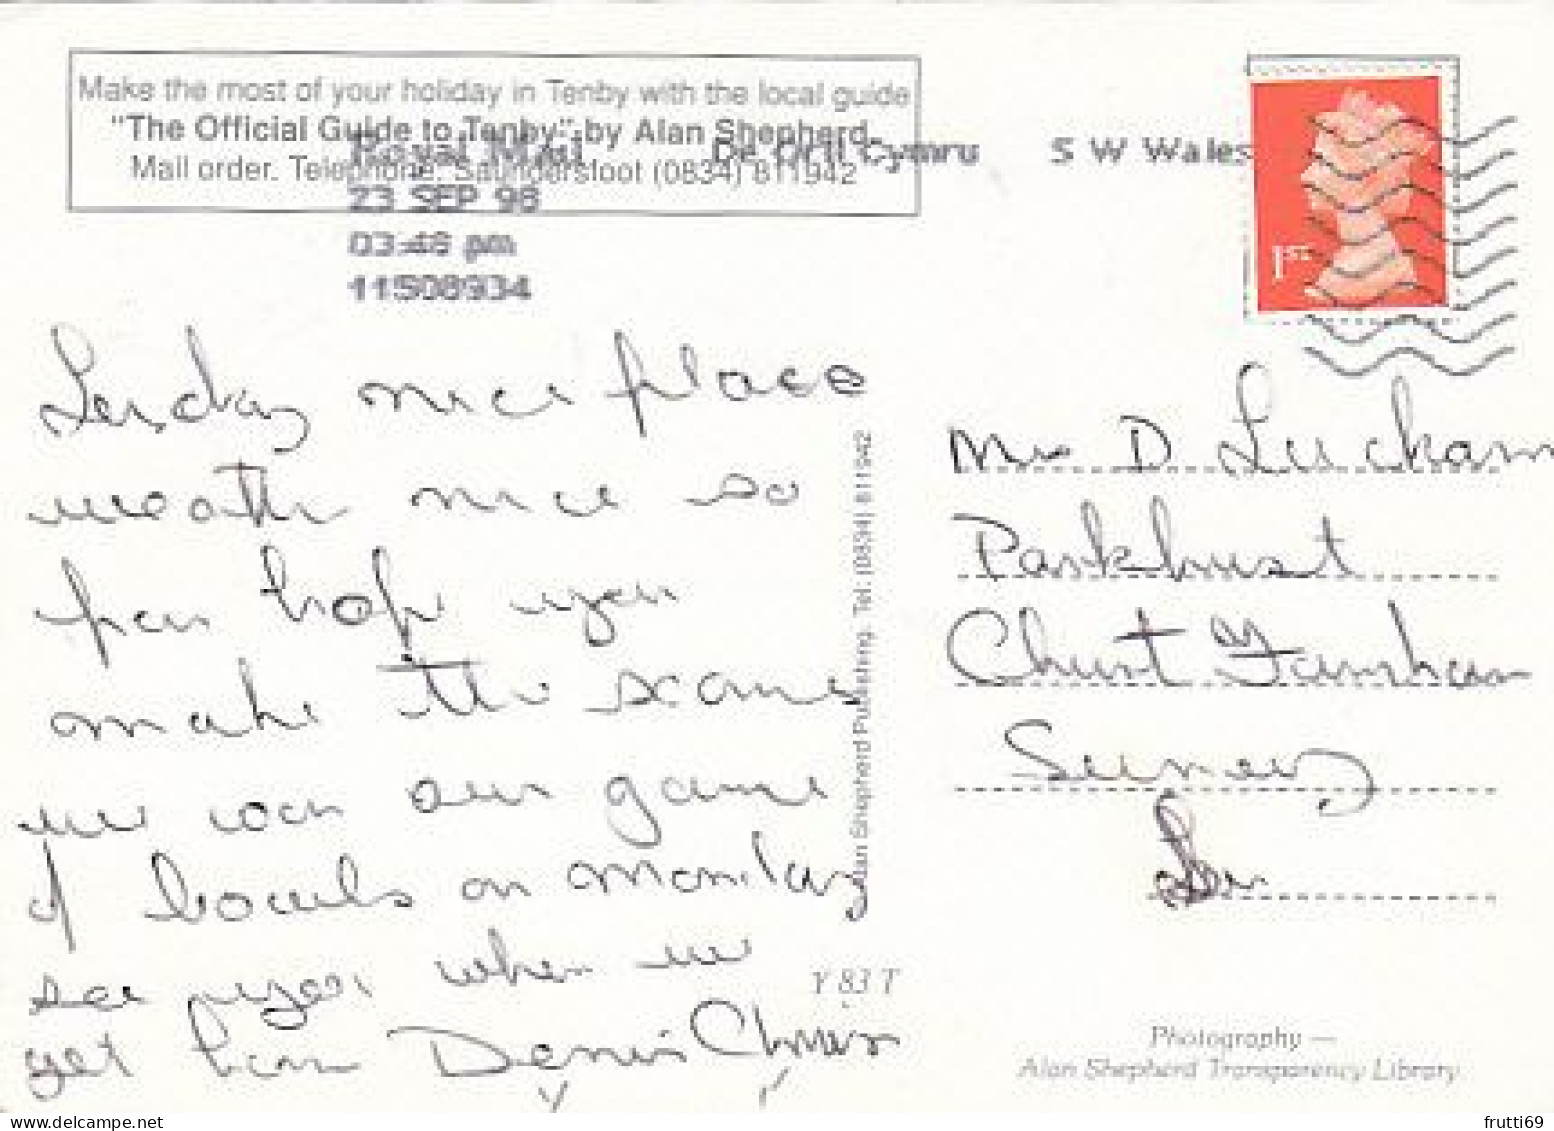 Make the most of your holiday in Tenby with the local guide
"The Official Guide to Tenby" by Alan Shepherd.
Mail order. Telephone: Saundersfoot (0834) 811942
Royal Mail De Orll Cymru S W Wales
23 SEP 98
03:48 pm
11508934
1ST
nice place
weather nice so
far hope you
make the same
we won our game
of bowls on monday
see you when we
get home Dennis Chris
Alan Shepherd Publishing. Tel: (0834) 811942
Mrs D Luckam
Parkhurst
Churt Farnham
Surrey
Y 83 T
Photography —
Alan Shepherd Transparency Library
frutti69